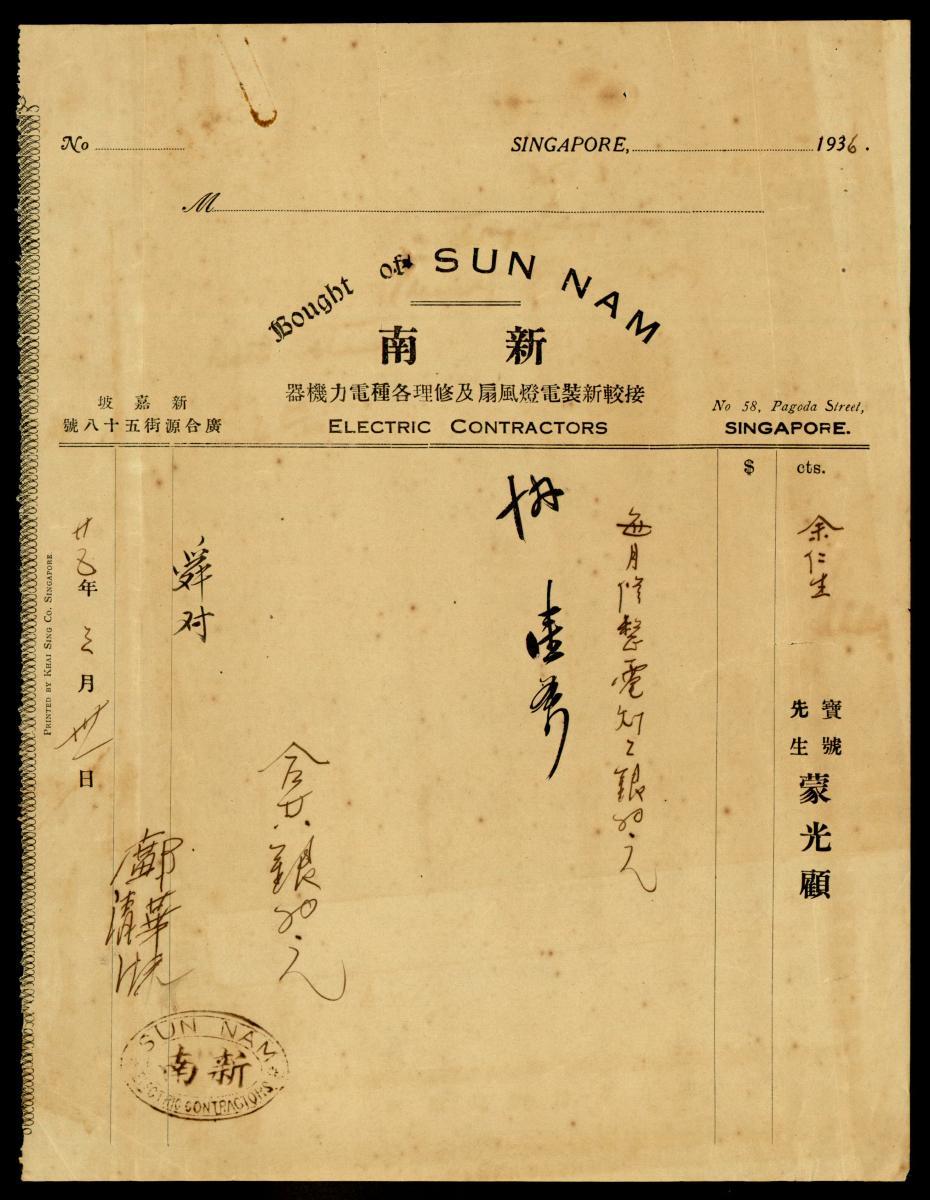 No
SINGAPORE, 1936.
M
Bought of SUN NAM
南 新
器機力電種各理修及扇風燈電裝新較接
ELECTRIC CONTRACTORS
坡 嘉 新
號八十五街源合廣
No 58, Pagoda Street,
SINGAPORE.
$ cts.
余仁生
寶號
先生
蒙光顧
每月修整電
銀 元
壹
合共銀 元
舜对
鄺清華
廿五年三月卅一日
PRINTED BY KHAI SING CO. SINGAPORE
SUN NAM
南新
ELECTRIC CONTRACTORS